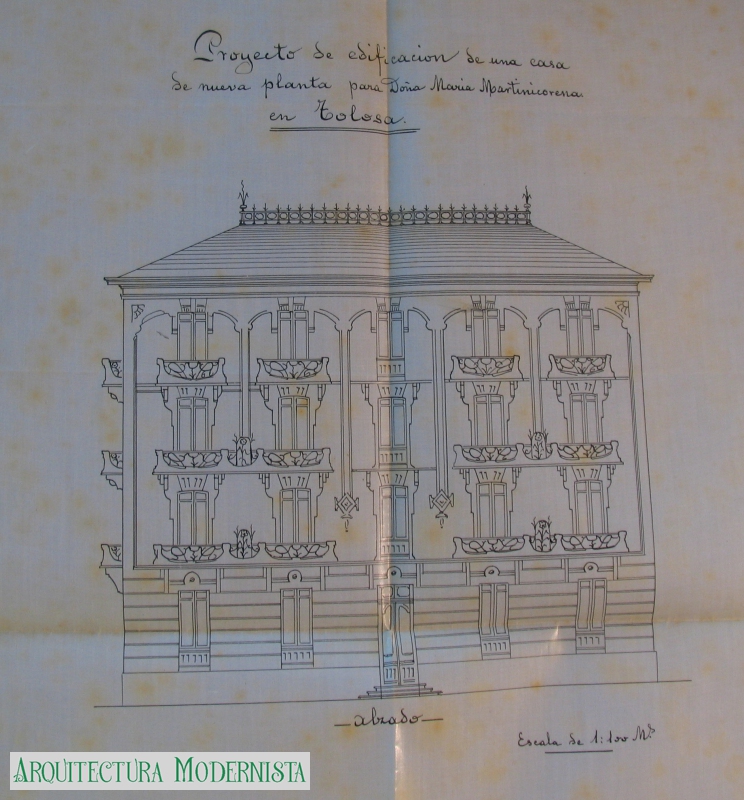 Proyecto de edificacion de una casa
de nueva planta para Doña Maria Martinicorena
en Tolosa.
Alzado
Escala de 1:100 Ms
ARQUITECTURA MODERNISTA